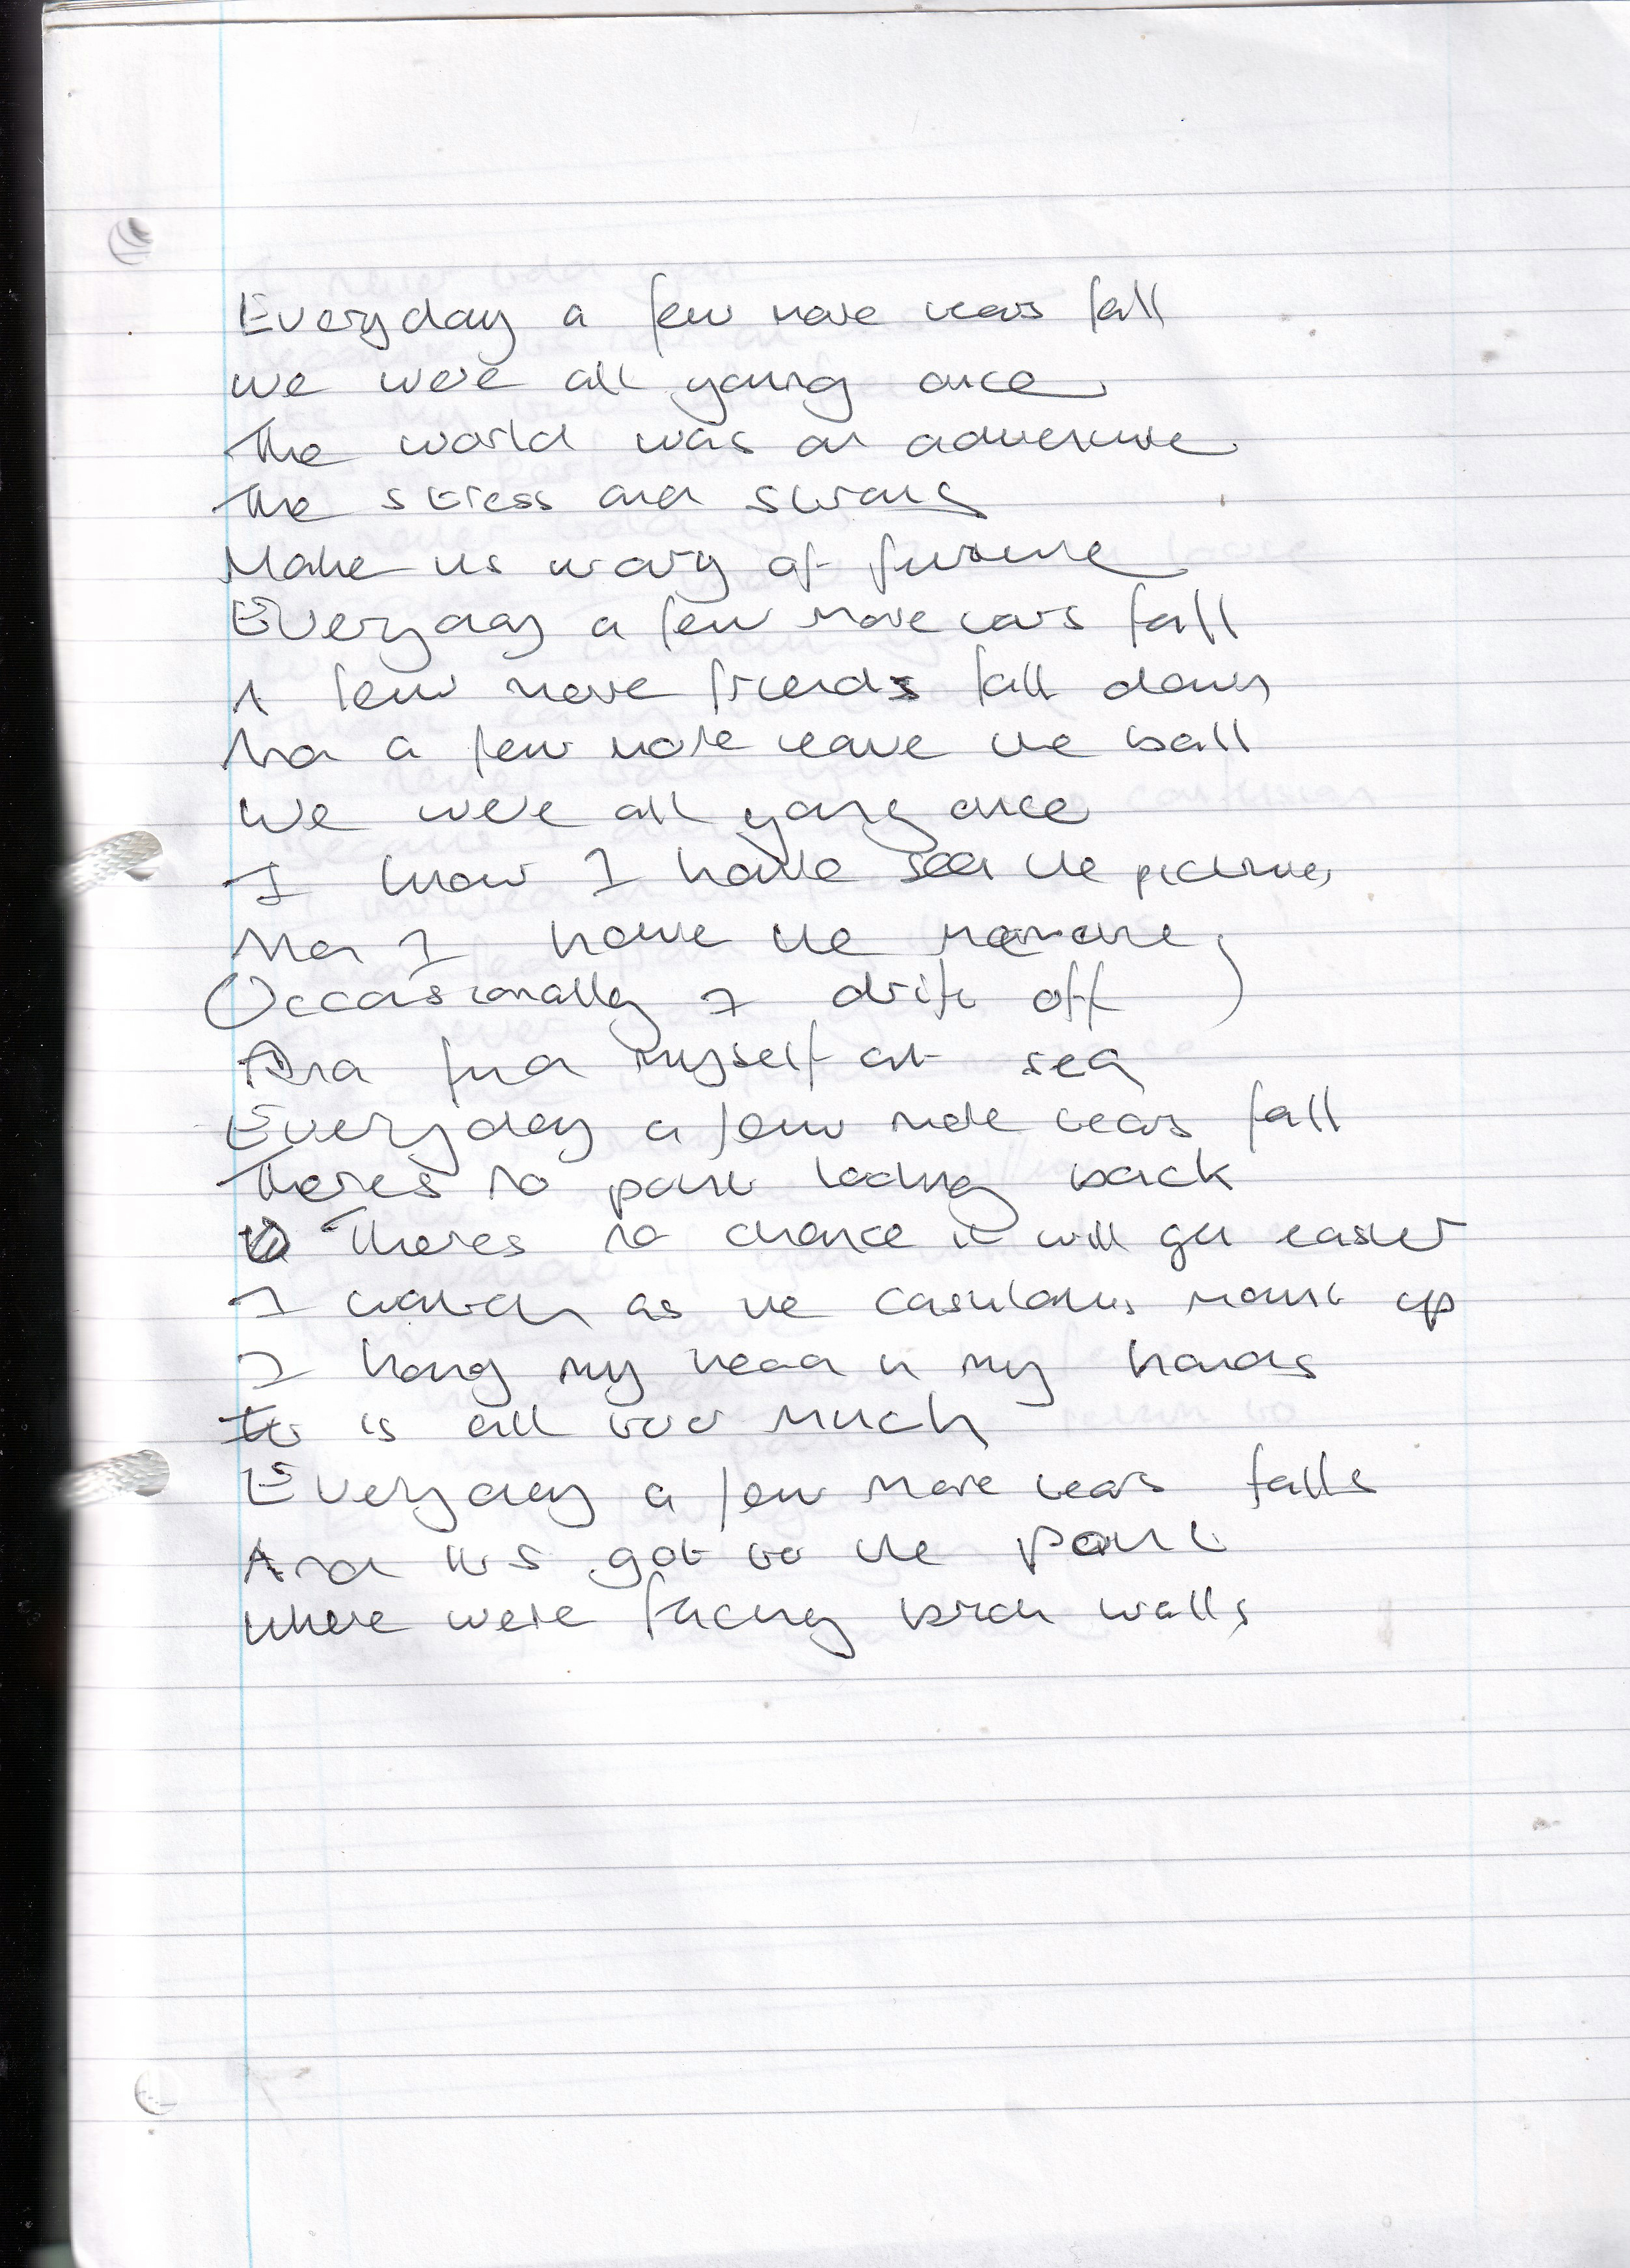 Everyday a few more tears fall
we were all young once
The world was an adventure
The stress and strains
Make us wary of future
Everyday a few more tears fall
A few more friends fall down
And a few more leave the ball
We were all young once
I know I have seen the pictures
And I have the memories
Occasionally I drift off
And find myself at sea
Everyday a few more tears fall
Theres no point looking back
Theres no chance it will get easier
I watch as the casultants mount up
I hang my head in my hands
It is all too much
Everyday a few more tears falls
And its got to the point
where were facing brick walls